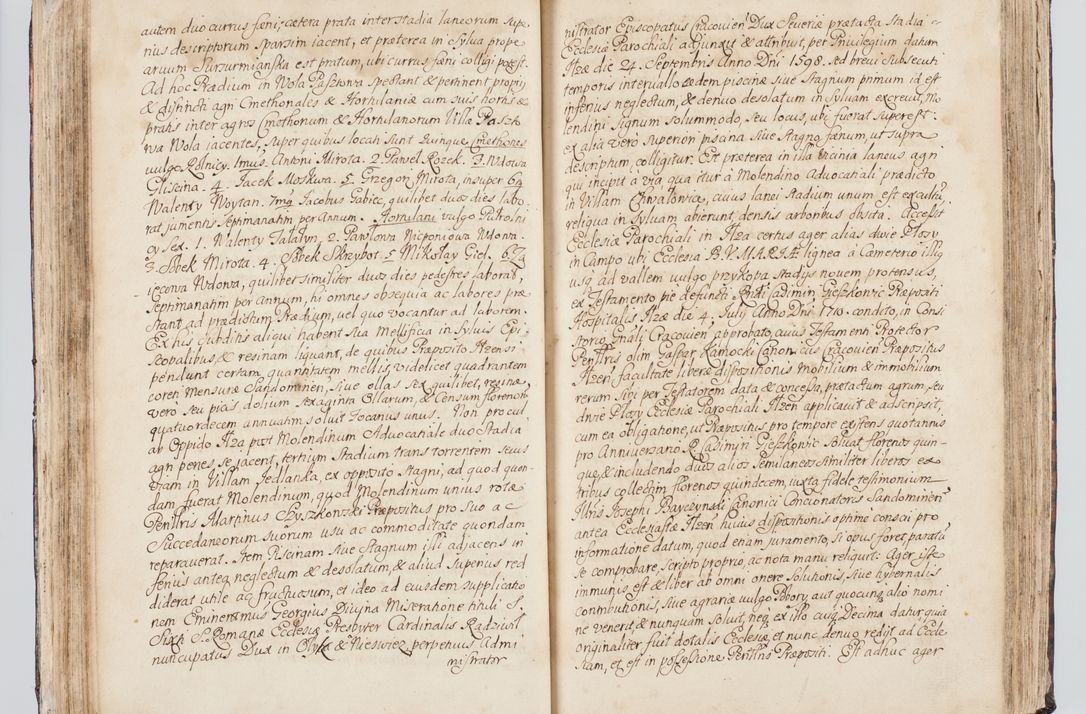 autem duo currus fæni; cætera prata inter stadia laneorum supe-
rius descriptorum sparsim iacent, et præterea in sylva prope
arvum Surzurmiańska est pratum, ubi currus fæni colligi potest.
Ad hoc Prædium in Wola Pasztowa spectant & pertinent proprij
& distincti agri Cmethonales & Hortulaniæ cum suis hortis &
pratis inter agros Cmethonum & Hortulanorum Villæ Paszto
wa Wola iacentes, super quibus locati sunt Quinque Cmethones
vulgo Rolnicy. 1mus. Antoni Mirota. 2. Paweł Rożek. 3. Wdowa
Gliścina. 4. Jacek Moskwa. 5. Grzegorz Mirota, insuper 6ty
Walenty Woytan. 7mg Jacobus Gabiec, quilibet duos dies labo-
rat jumentis septimanatim per Annum. Hortulani vulgo Pułrolni
cy sex. 1. Walenty Tatałyn, 2. Pawłowa Nieponiowa Wdowa.
3. Sobek Mirota. 4. Sobek Skrzybot. 5 Mikołay Giel. 6. Za
ięcowa Wdowa, quilibet similiter duos dies pedestres laborat,
septimanatim per Annum, hi omnes obsequia ac labores præ
stant ad prædictum Prædium, vel quo vocantur ad laborem.
Ex his subditis aliqui habent sua Mellificia in sylvis Epi-
scopalibus & resinam liquant, de quibus Præposito Ilzensi
pendunt certam quantitatem mellis, videlicet quadrantem
coren mensuræ Sandomirien, sive ollas sex quilibet, resinæ
vero seu picis dolium sexaginta Ollarum, & Censum florenorum
quatuordecem annuatim solvit focanus unus. Non procul
ab Oppido Ilza post Molendinum Advocatiale duo Stadia
agri penes se jacent, tertium Stadium trans torrentem seus
viam in Villam Jedlanka, ex opposito Stagni, ad quod quon-
dam fuerat Molendinum, quod Molendinum unius rotæ
Perillris Martinus Chyszkowski Præpositus pro suo ac
Succedaneorum suorum usu ac commoditate quondam
reparaverat. Item Piscinam sive Stagnum illi adjacens in
ferius antea neglectum & desolatum, & aliud superius red
diderat utile ac fructuosum, et ideo ad eiusdem supplicatio
nem Eminentmus Georgius Divina Miseratione tituli S.
Sixti S. Romanæ Ecclesiæ Presbyter Cardinalis Radziwił
nuncupatus Dux in Ołyka & Nieswiez perpetuus Admi
nistrator
nistrator Episcopatus Cracovien Dux Severiæ prætacta Stadia
Ecclesiæ Parochiali adjunxit & attribuit, per Privilegium datum
Ilzæ die 24. Septembris Anno Dni 1598. Sed brevi subsecuti
temporis intervallo eædem piscinæ sive Stagnum primum id est
inferius neglectum, & denuo desolatum in sylvam excrevit, Mo
lendini signum solummodo, seu locus, ubi fuerat superest:
ex alia verò superiori piscina sive Stagno fænum, ut supra
descriptum, colligitur. Est præterea in illa vicinia laneus agri
qui incipit a via qua itur à Molendino Advocatiali prædicto
in Villam Chwałowice, cuius lanei Stadium unum est excultũ,
reliqua in sylvam abierunt densis arboribus ditata. Accessit
Ecclesiæ Parochiali in Ilza certus ager alias dwie Płozy
in Campo ubi Ecclesia B. V. MARIÆ lignea à Cæmeterio illig
usq ad vallem vulgo przykopa stadys novem protensus,
ex Testamento piè defuncti Rndi Casimiri Gieszkowic Præpositi
Hospitalis Ilzæ die 4. July Anno Dni 1710. condito, in Consi
storio Gnali Cracovien approbato, cuius Testamenti Protector
Perillris olim Gaspar Kamocki Canoncus Cracovien Præpositus
Ilzen facultate liberæ dispositionis mobilium & immobilium
rerum sigi per Testatorem data & concessa, prætactum agrum, seu
dwie Płozy Ecclesiæ Parochiali Ilzen applicavit & adscripsit,
cum ea obligatione, ut Præpositus pro tempore existens quotannis
pro Anniversario R. Casimiri Gieszkowic solvat florenos quin-
que, & includendo duos alios semilaneos similiter liberos ex
tribus collectim florenos quindecem, iuxta fidele testimonium
Illris Josephi Bayczynski Canonici Concionatoris Sandomirien
antea Ecclesiastæ Ilzen huius dispositionis optimè conscii pro
informatione datum, quod etiam juramento, si opus foret paratũ
se comprobare, scripto proprio, ac nota manu reliquit: Ager iste
immunis est & liber ab omni onere solutionis, sive hybernalis
contributionis, sive agrariæ vulgo Pobory, aut quocunq alio nomi
ne venerit & nunquam solvit, neq ex illo cuiq Decima datur, quia
originaliter fuit dotalis Ecclesiæ, et nunc denuo redijt ad Eccle
siam, et est in possessione Perillris Præpositi. Est adhuc ager